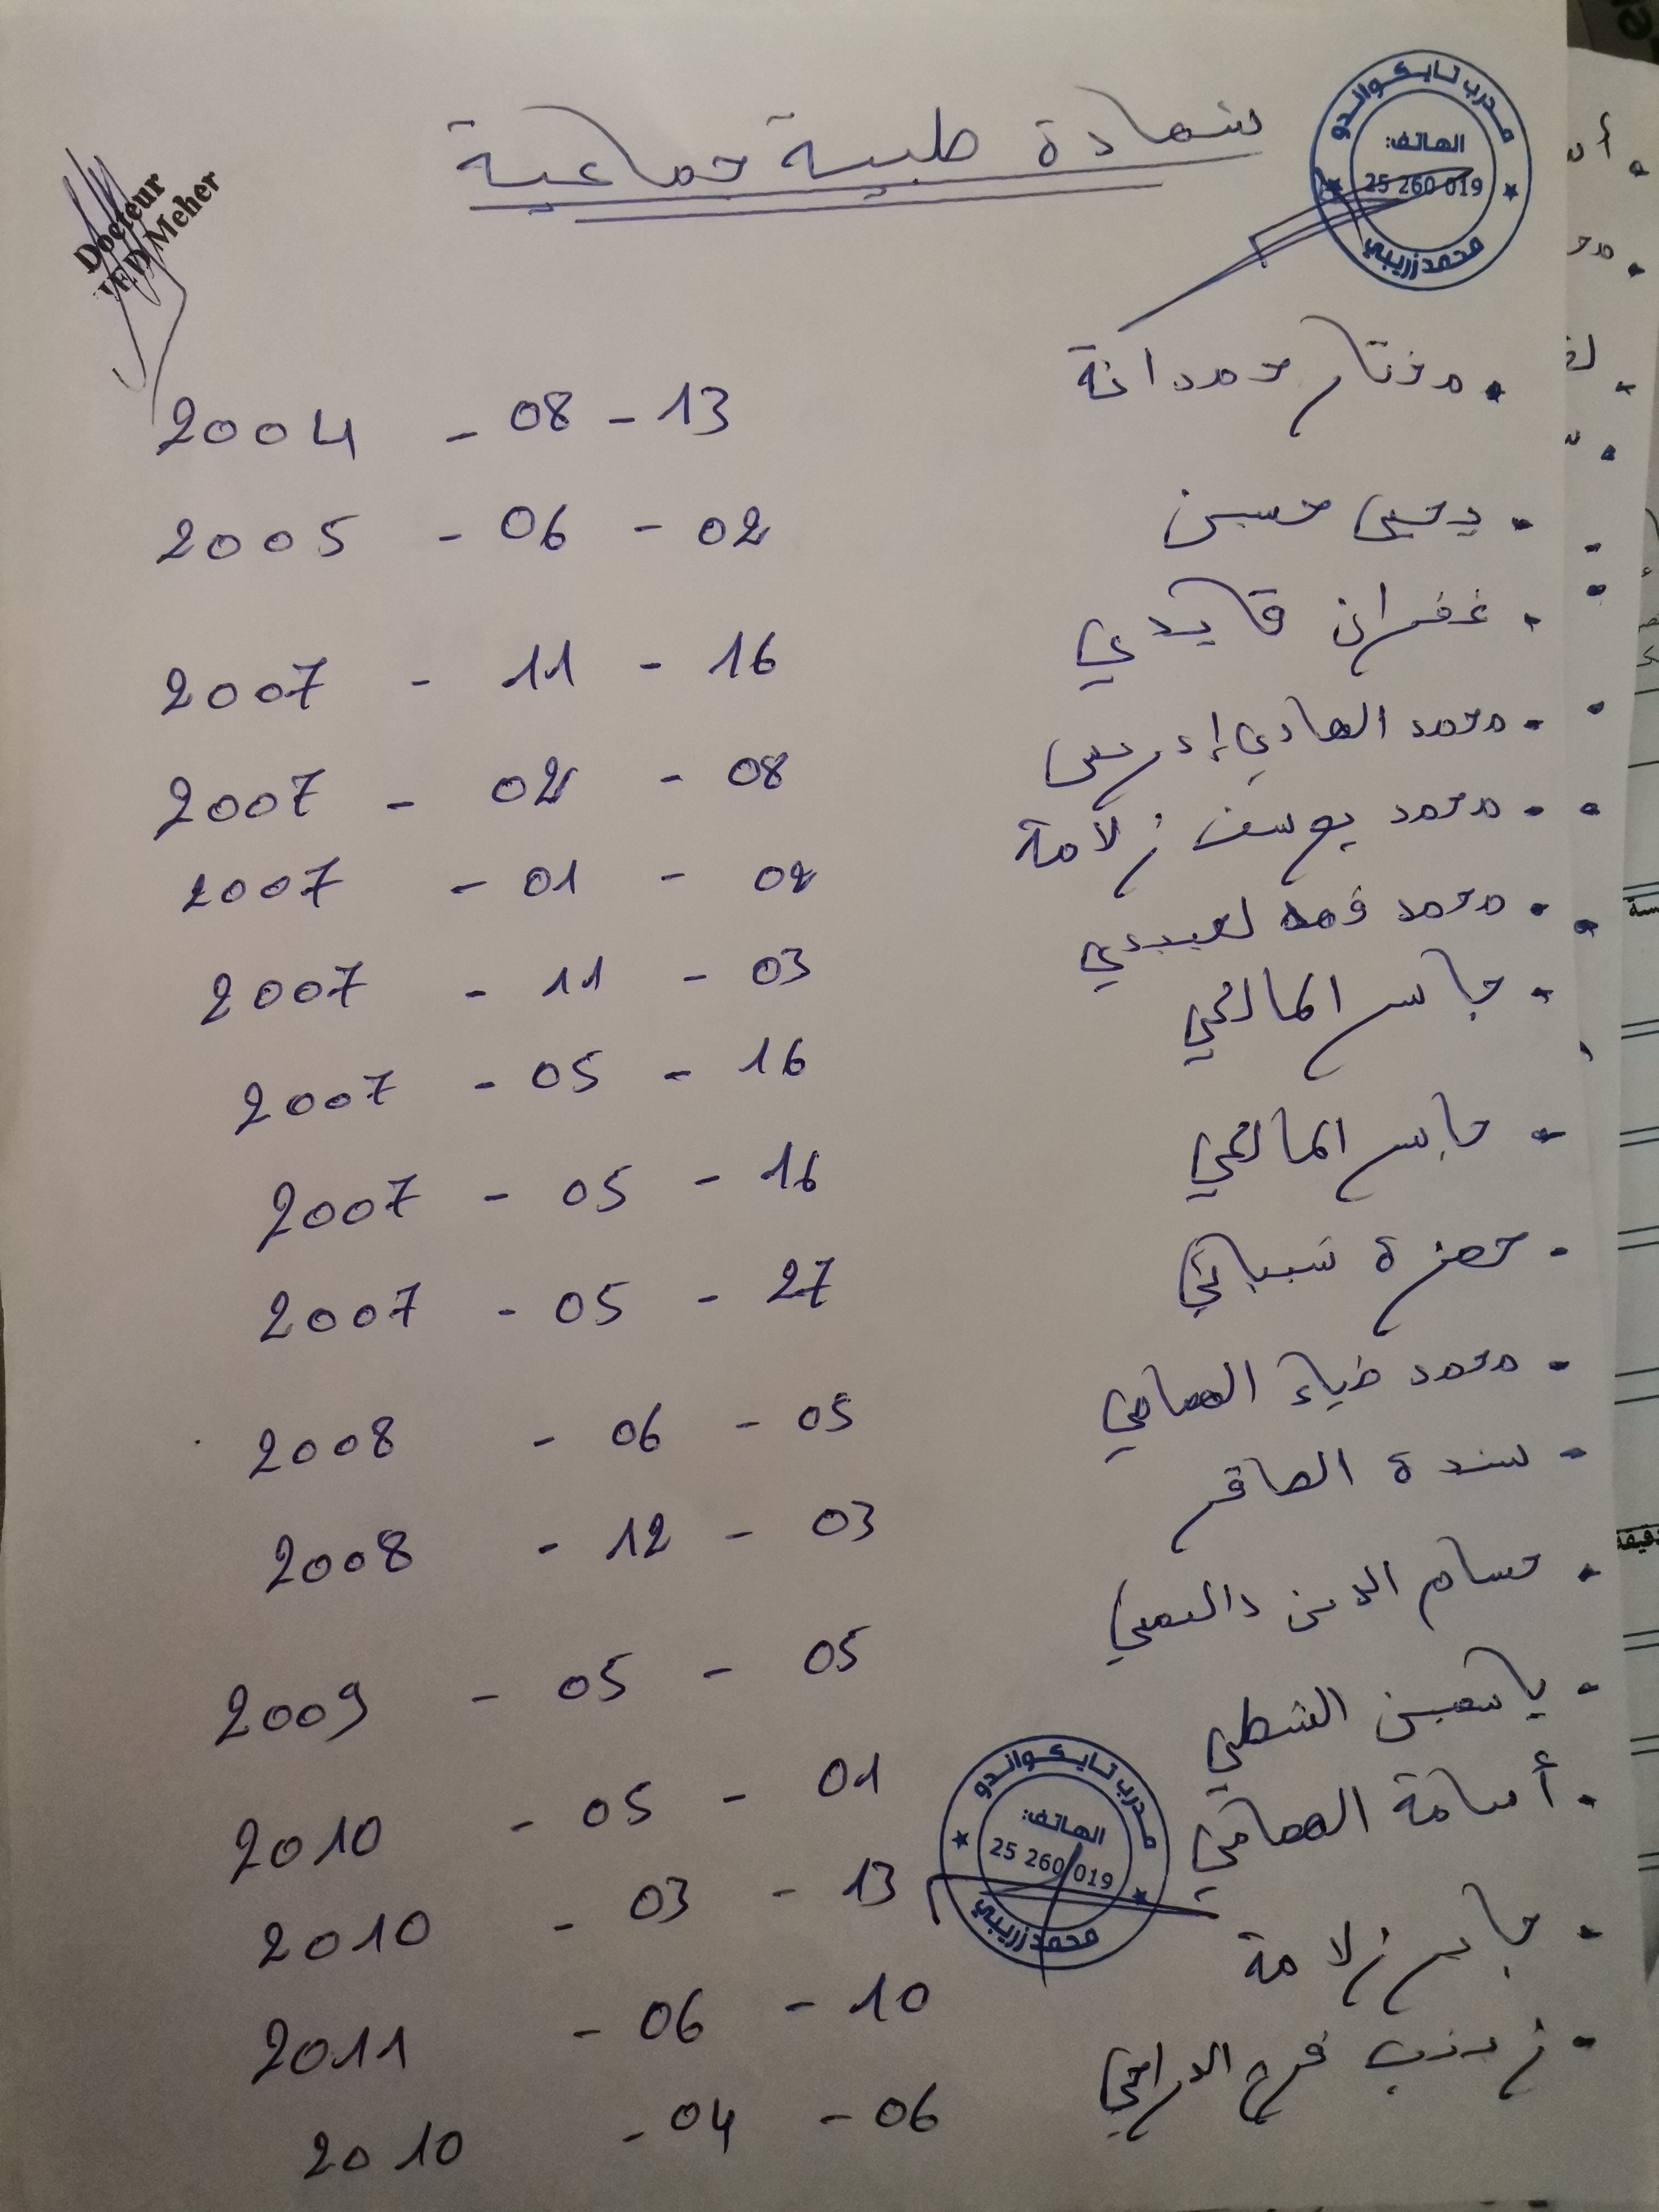 شهادة طبية جماعية
مدرب تايكواندو
الهاتف:
25 260 019
محمد زريبي
Docteur
Meher
. مختار حمدانة 13 - 08 - 2004
. يحيى حسين 02 - 06 - 2005
. غفران قايدي 16 - 11 - 2007
. محمد الهادي إدريس 08 - 02 - 2007
. محمد يوسف زلامة 02 - 01 - 2007
. محمد فهد لعبيدي 03 - 11 - 2007
. جاسر المالكي 16 - 05 - 2007
- المالكي 16 - 05 - 2007
. حمزة شيباني 27 - 05 - 2007
- محمد ضياء العصامي 05 - 06 - 2008
- سندة الصاقر 03 - 12 - 2008
. حسام الدين 05 - 05 - 2009
- ياسمين الشطي 01 - 05 - 2010
. أسامة العصامي 13 - 03 - 2010
- جاسر زلامة 10 - 06 - 2011
- زينب فرج الدراجي 06 - 04 - 2010
مدرب تايكواندو
الهاتف:
25 260 019
محمد زريبي